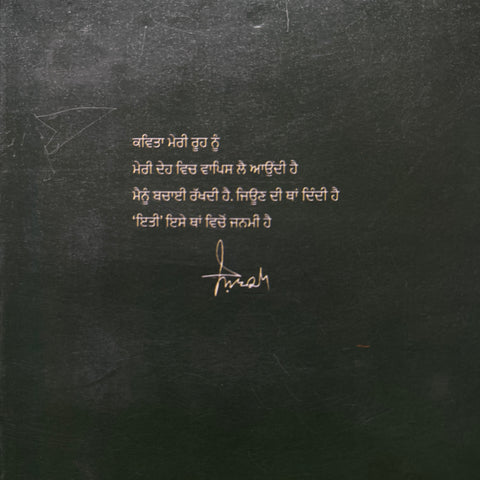 ਕਵਿਤਾ ਮੇਰੀ ਰੂਹ ਨੂੰ
ਮੇਰੀ ਦੇਹ ਵਿਚ ਵਾਪਿਸ ਲੈ ਆਉਂਦੀ ਹੈ
ਮੈਨੂੰ ਬਚਾਈ ਰੱਖਦੀ ਹੈ. ਜਿਊਣ ਦੀ ਥਾਂ ਦਿੰਦੀ ਹੈ
'ਇਤੀ' ਇਸੇ ਥਾਂ ਵਿਚੋਂ ਜਨਮੀ ਹੈ